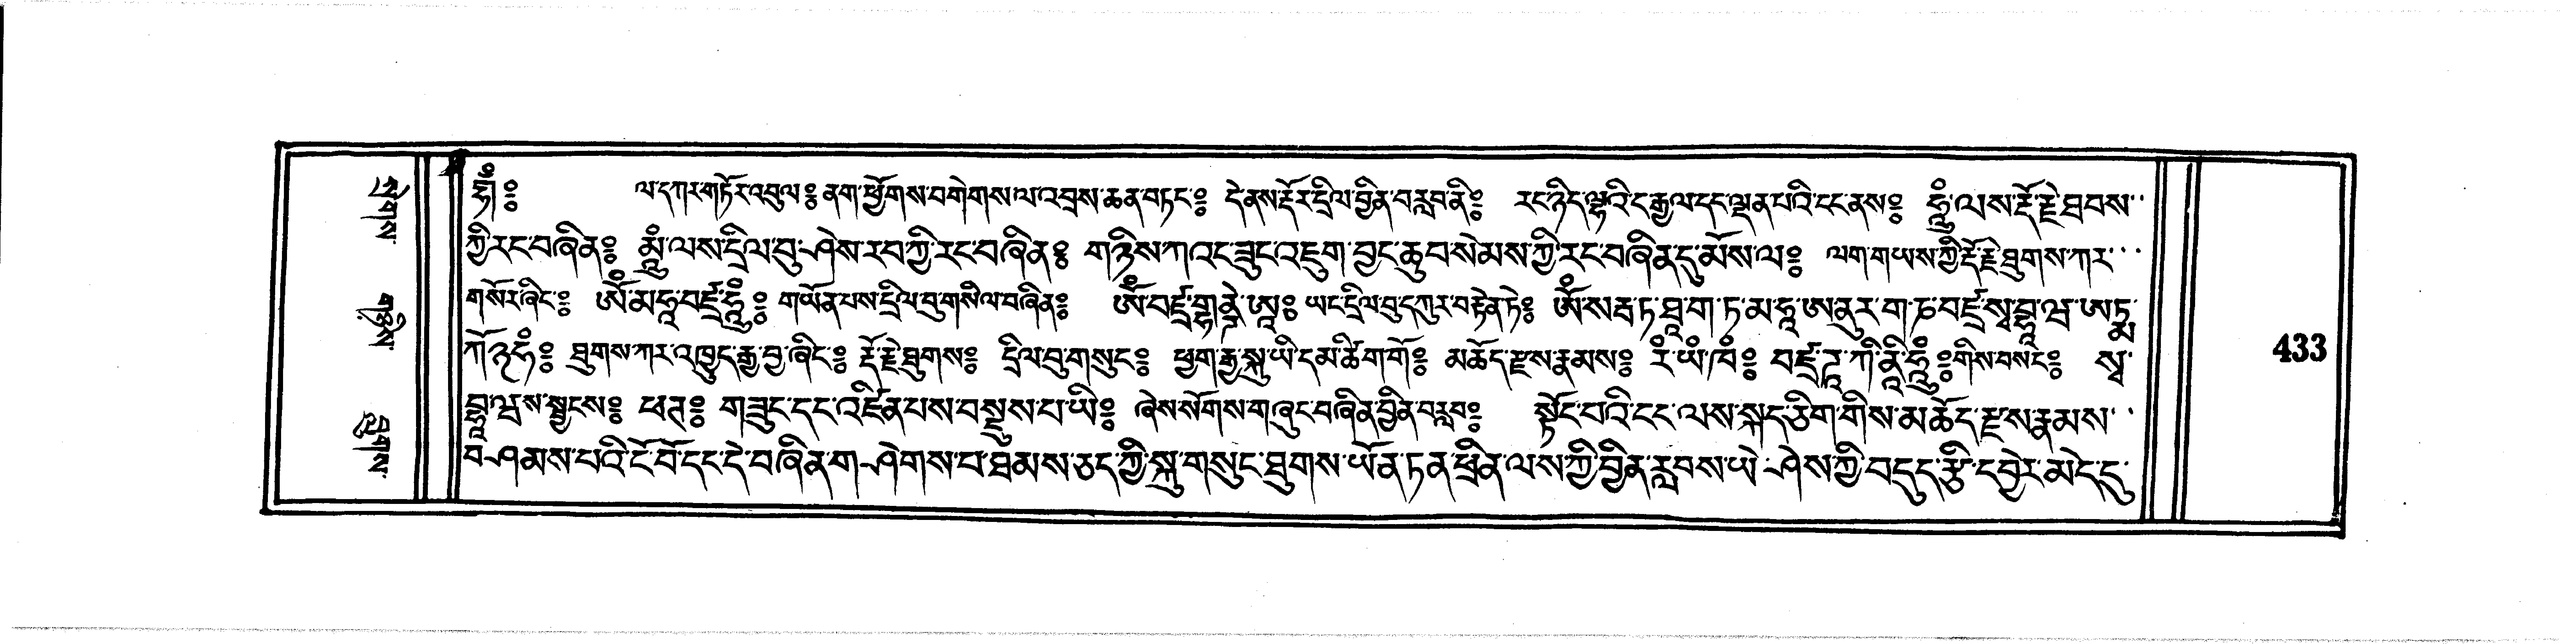 ཧཾ༔ ལ་དཀར་གཏོར་འབུལ༔ ནག་ཕྱོགས་བགེགས་ལ་འབྲས་ཆན་བཏང་༔ དེ་ནས་རྡོར་དྲིལ་བྱིན་བརླབ་ནི༔ རང་ཉིད་ལྷའི་ང་རྒྱལ་དང་ལྡན་པའི་ངང་ནས༔ ཧཱུྃ་ལས་རྡོ་རྗེ་ཐབས་
ཀྱི་རང་བཞིན༔ མཱུྃ་ལས་དྲིལ་བུ་ཤེས་རབ་ཀྱི་རང་བཞིན༔ གཉིས་ཀའང་ཟུང་འཇུག་བྱང་ཆུབ་སེམས་ཀྱི་རང་བཞིན་དུ་མོས་ལ༔ ལག་གཡས་ཀྱི་རྡོ་རྗེ་ཐུགས་ཀར་
གསོར་ཞིང་༔ ཨོཾ་མ་ཧཱ་བཛྲ་ཧཱུྃ༔ གཡོན་པས་དྲིལ་བུ་གསིལ་བཞིན༔ ཨོཾ་བཛྲ་གྷཎྜེ་ཨཱ༔ ཡང་དྲིལ་བུ་དཀུར་བརྟེན་ཏེ༔ ཨོཾ་སརྦ་ཏ་ཐཱ་ག་ཏ་མ་ཧཱ་ཨ་ནུ་ར་ག་ཎ་བཛྲ་སྭ་བྷཱ་ཝ་ཨཏྨ་
ཀོ྅ཧཾ༔ ཐུགས་ཀར་འཁྱུད་རྒྱ་བྱ་ཞིང་༔ རྡོ་རྗེ་ཐུགས༔ དྲིལ་བུ་གསུང་༔ ཕྱག་རྒྱ་སྐུ་ཡི་དམ་ཚིག་གོ༔ མཆོད་རྫས་རྣམས༔ རཾ་ཡཾ་ཁཾ༔ བཛྲ་ཌཱ་ཀི་ནཱི་ཧཱུྃ༔ གིས་བསང་༔ སྭ་
བྷཱ་ཝས་སྦྱངས༔ ཕཊ༔ གཟུང་དང་འཛིན་པས་བསྡུས་པ་ཡི༔ ཞེས་སོགས་གཞུང་བཞིན་བྱིན་བརླབ༔ སྟོང་པའི་ངང་ལས་སྐད་ཅིག་གིས་མཆོད་རྫས་རྣམས་
བཤམས་པའི་ངོ་བོ་དང་དེ་བཞིན་གཤེགས་པ་ཐམས་ཅད་ཀྱི་སྐུ་གསུང་ཐུགས་ཡོན་ཏན་ཕྲིན་ལས་ཀྱི་བྱིན་རླབས་ཡེ་ཤེས་ཀྱི་བདུད་རྩི་དབྱེར་མེད་དུ་
433